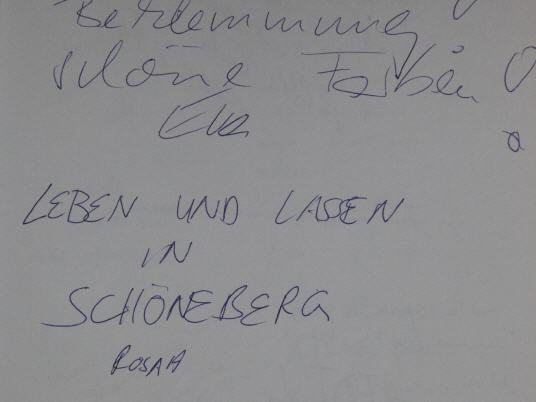 Beklemmung
schöne Farben
Eva
LEBEN UND LASSEN
IN
SCHÖNEBERG
ROSAH